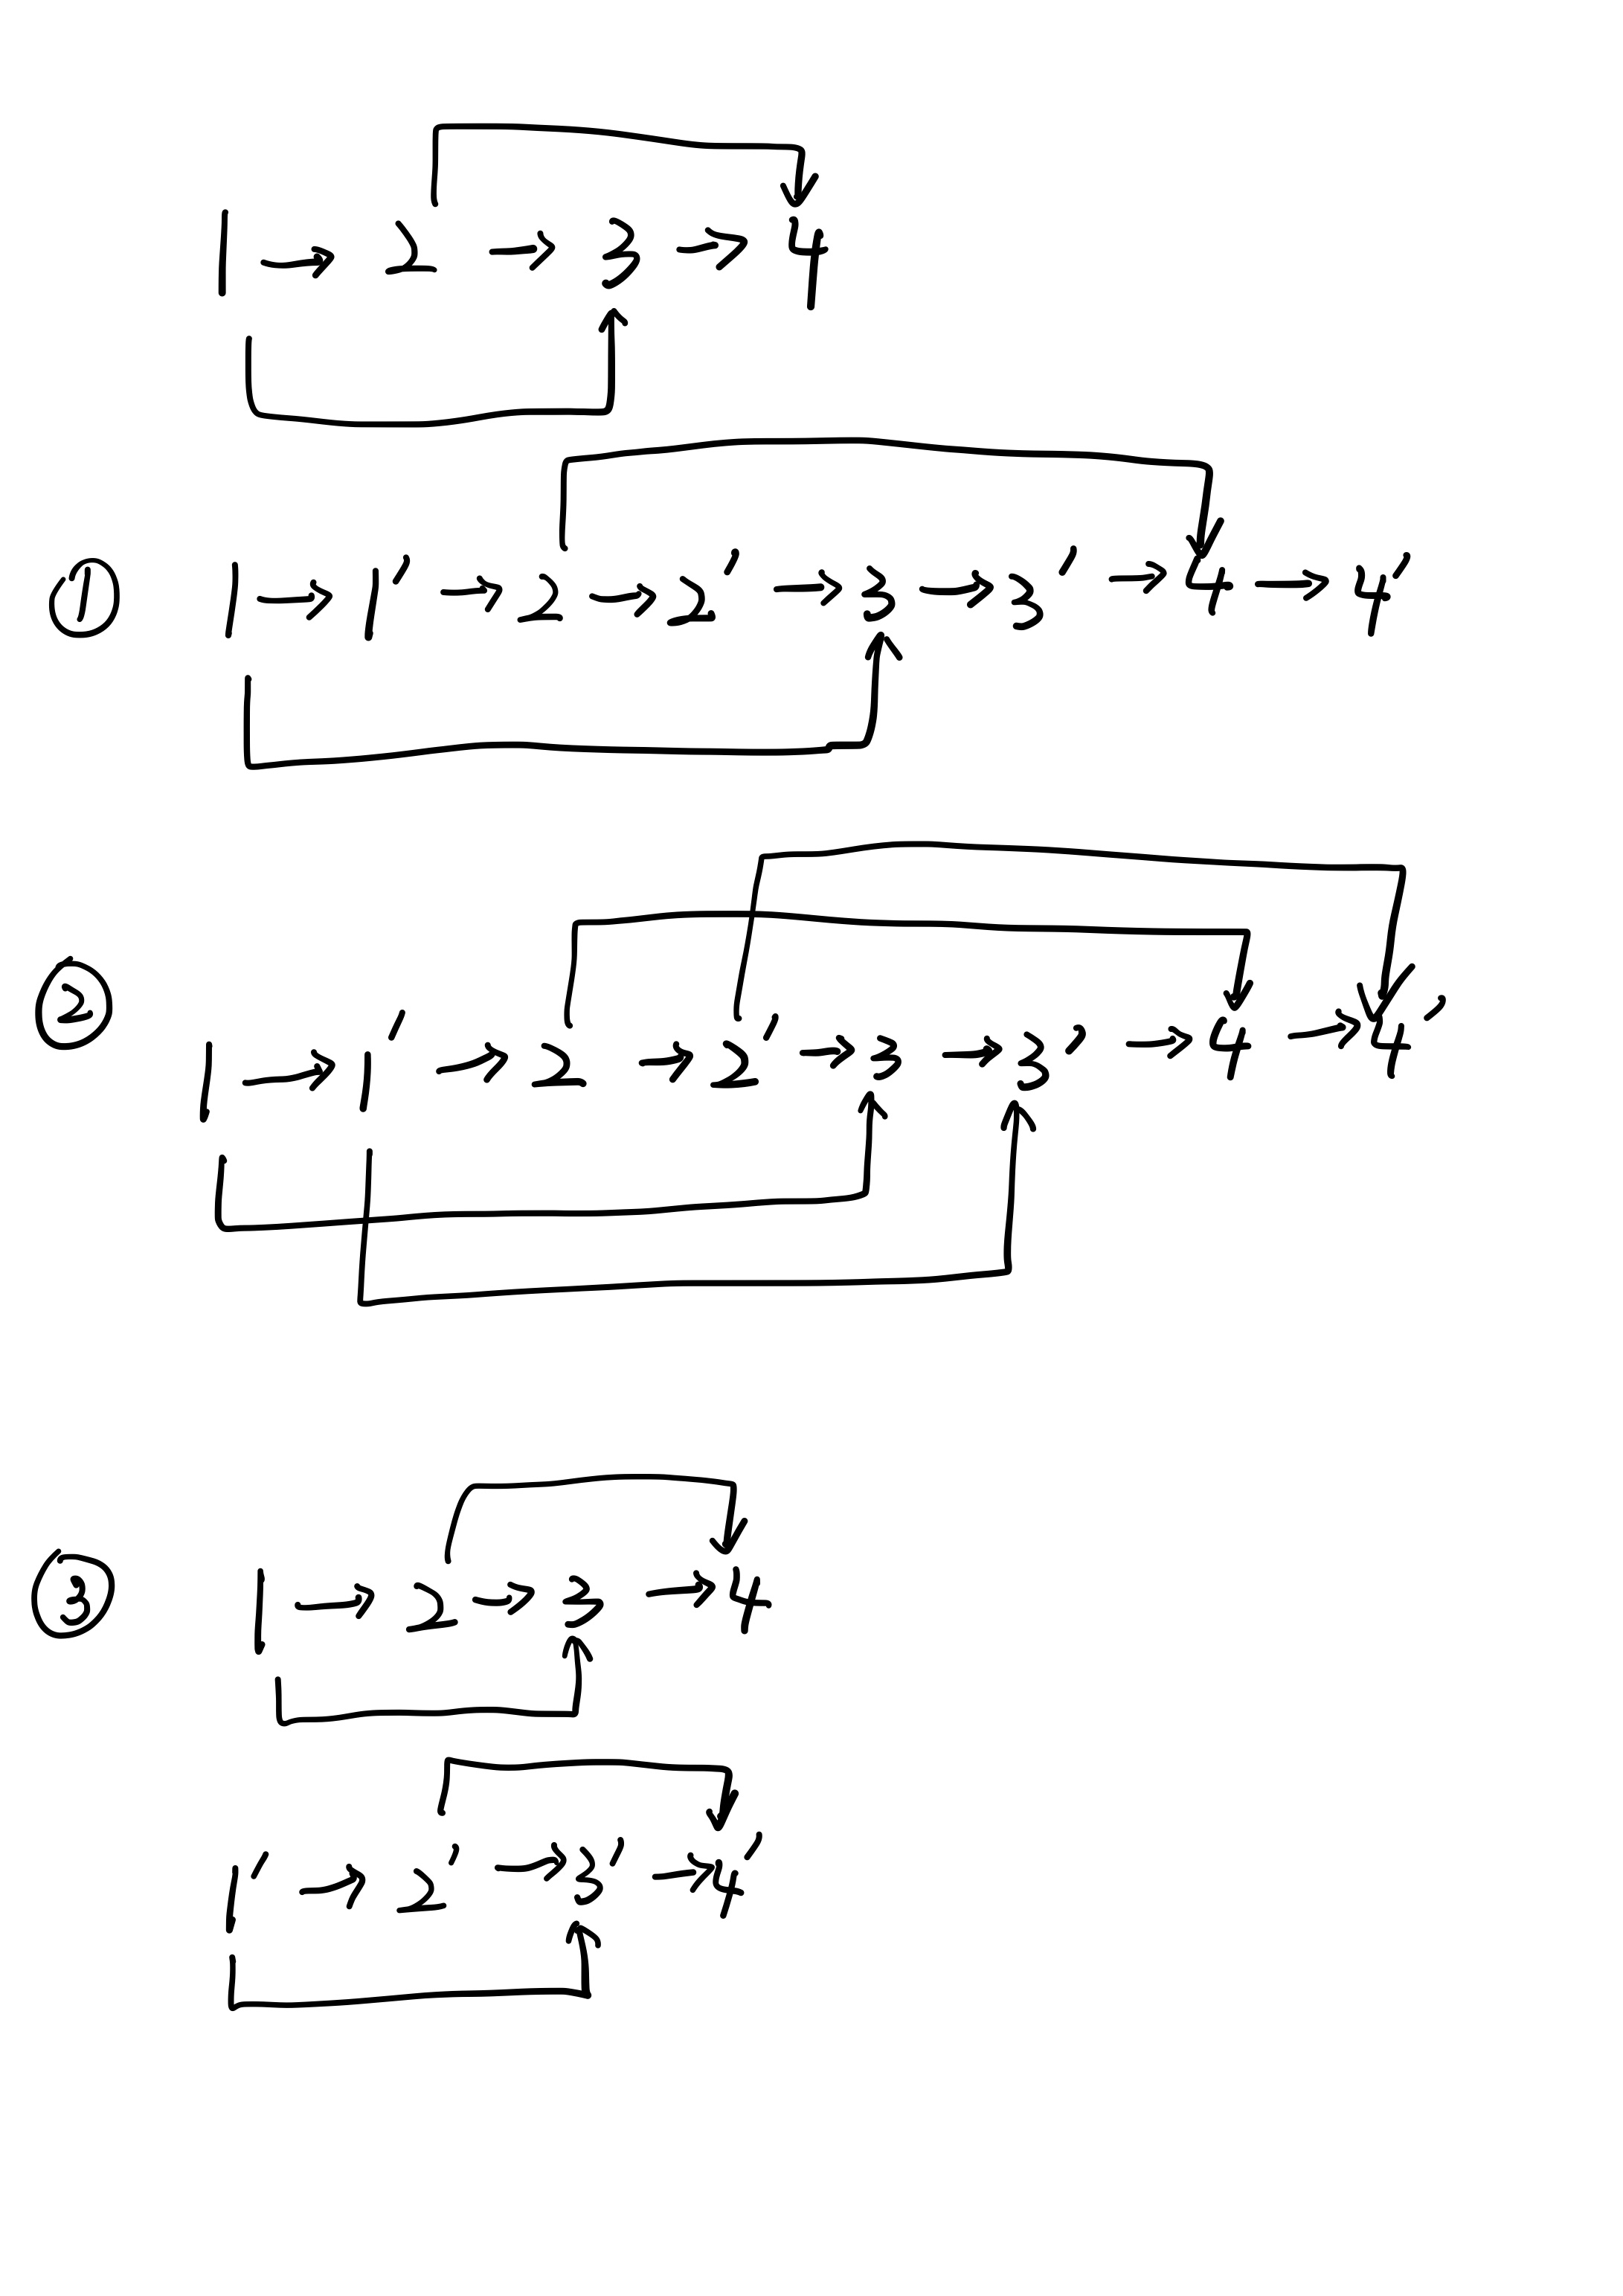 1 → 2 → 3 → 4
① 1 → 1' → 2 → 2' → 3 → 3' → 4 → 4'
② 1 → 1' → 2 → 2' → 3 → 3' → 4 → 4'
③ 1 → 2 → 3 → 4
1' → 2' → 3' → 4'